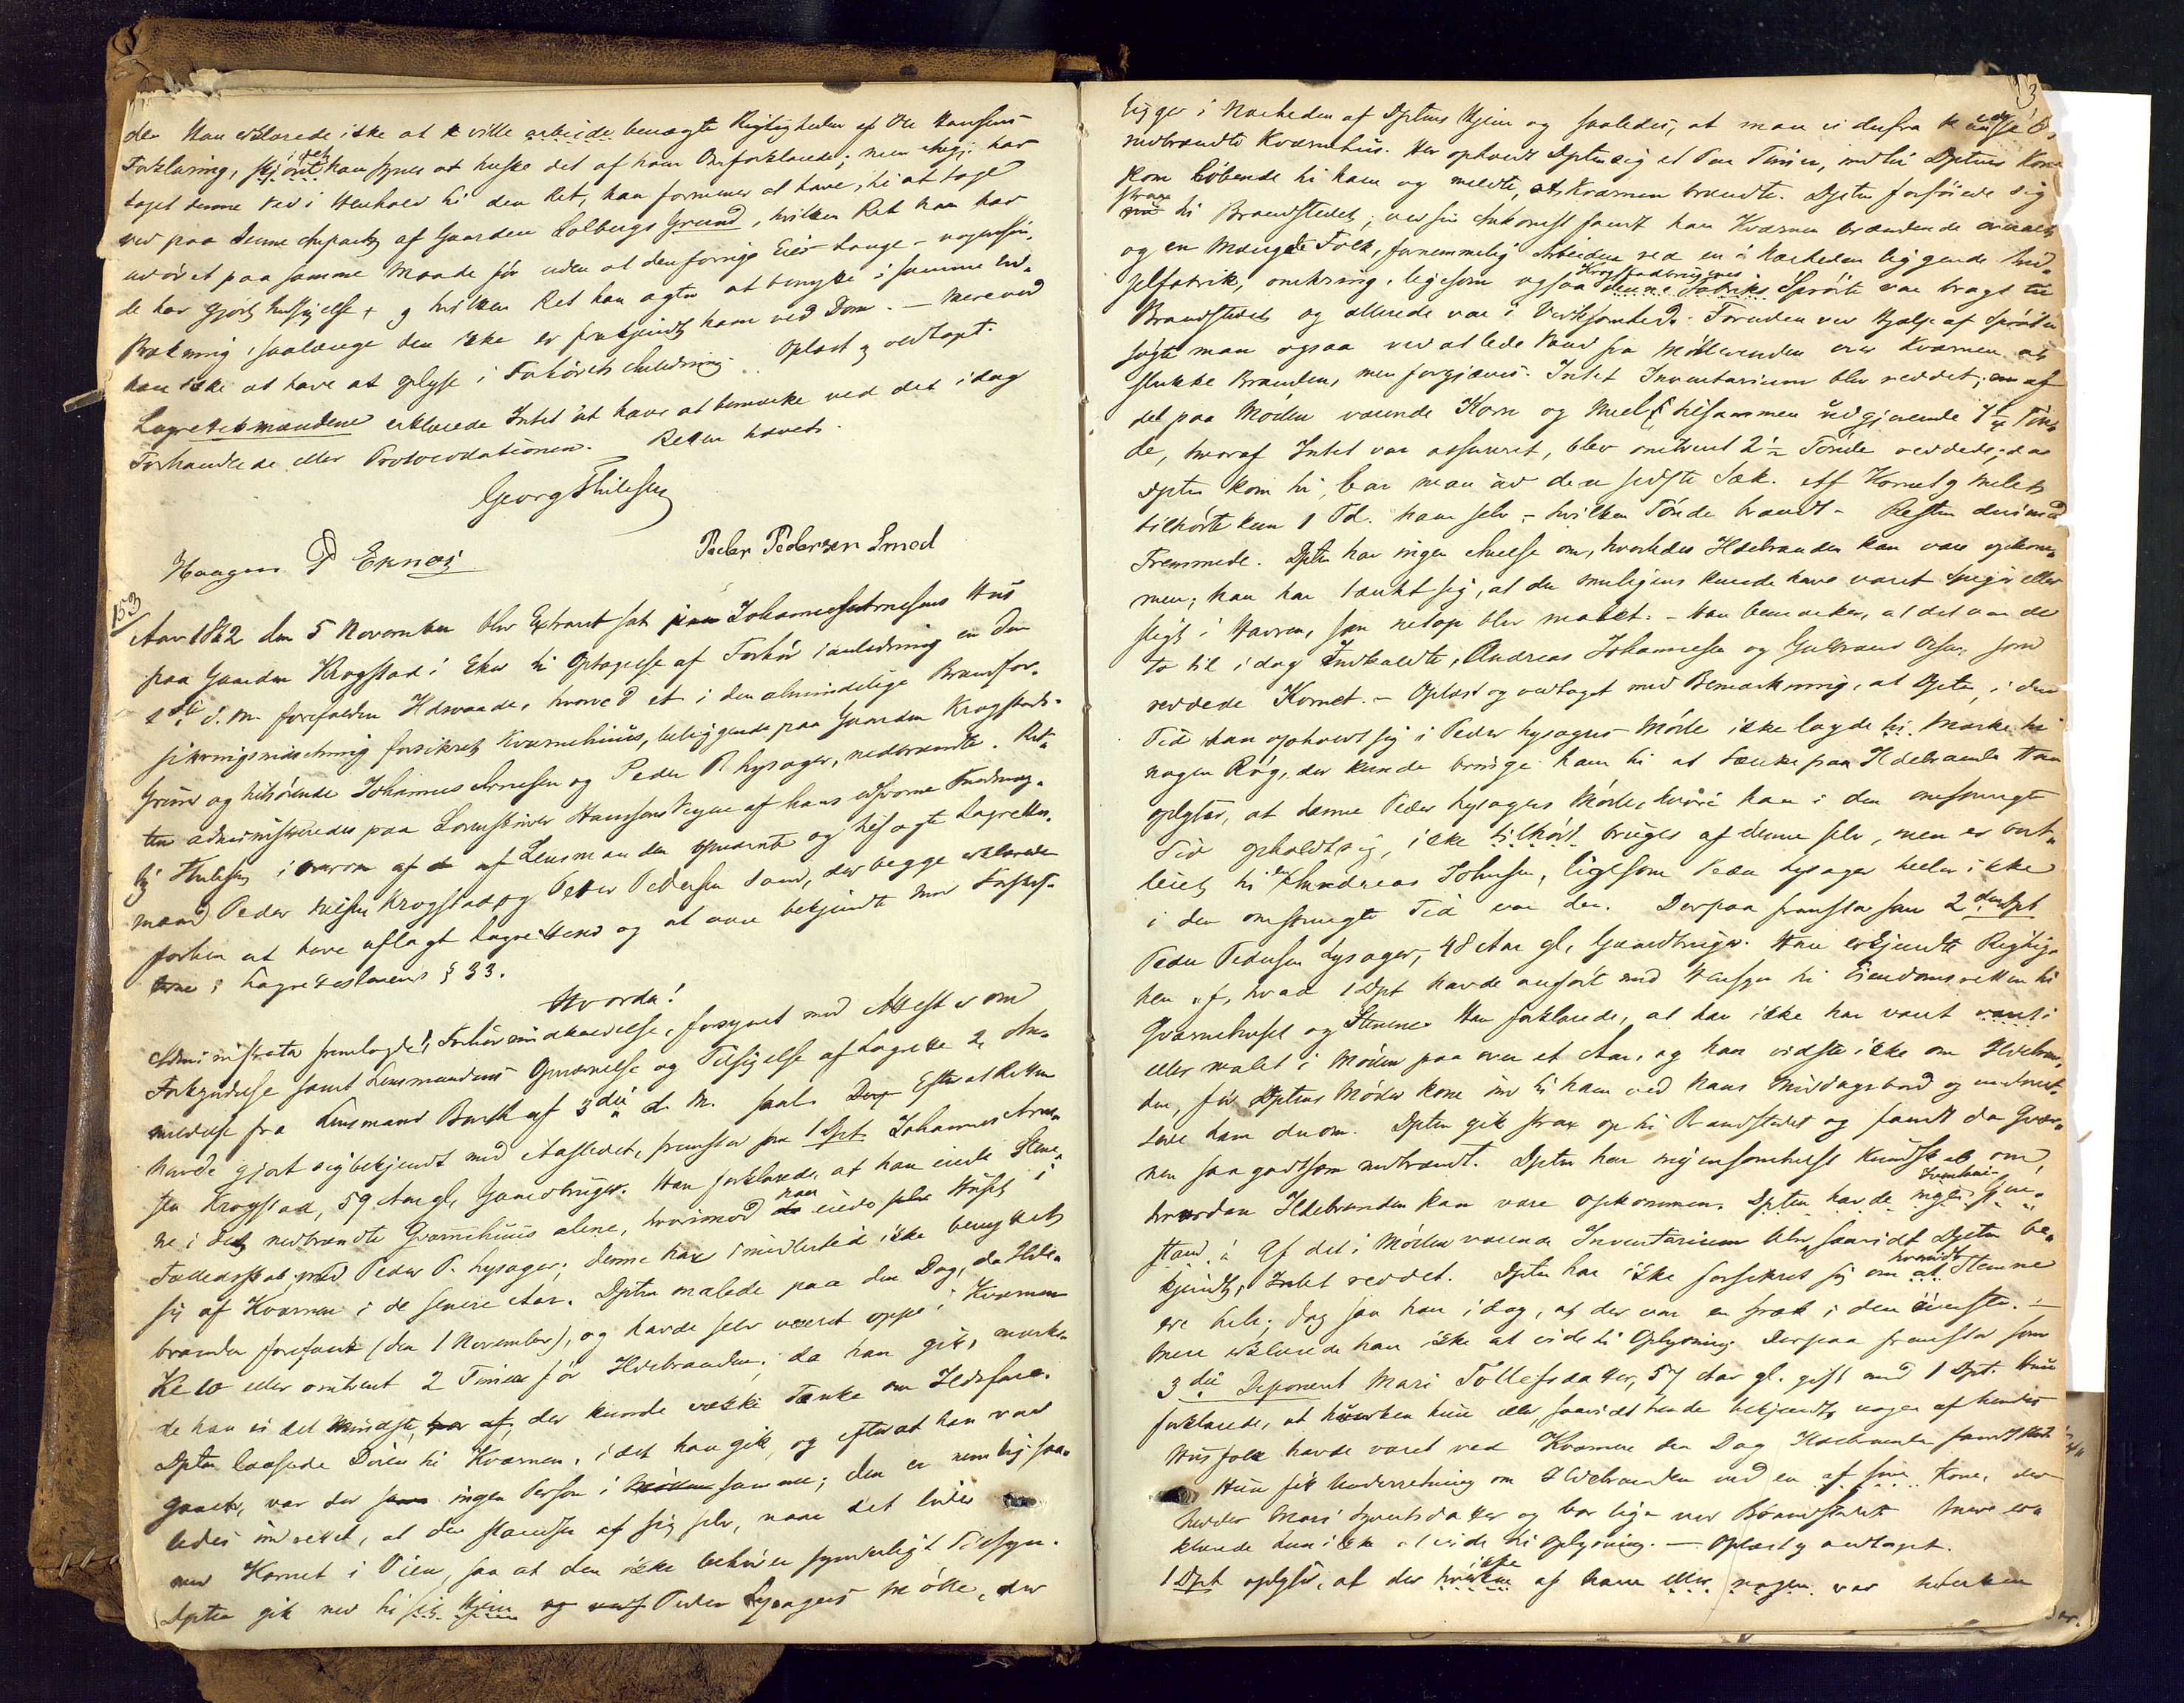 den Han erklærede ikke at ville arbeide benægte Rigtigheden af Ole Hansens
Forklaring, skjönt han synes at huske det af ham Omforklarede; men har
taget denne Ved i Henhold til den Ret, han formener at have, til at tage
ved paa denne Anpart af Gaarden Solbergs Grund, hvilken Ret han har
udövet paa samme Maade för uden at den forrige Eier Lange - nogensinde
har gjort Indsigelse og hvilken Ret han agter at benytte i samme Ud-
strækning, saalænge den ikke er frakjendt ham ved Dom. — Mere ved
han ikke at have at oplyse i Forhörets Anledning. Oplæst og vedtaget.
Lagrettesmændene erklærede Intet at have at bemærke ved det idag
Forhandlede eller Protocollationen. Retten hævet.
Georg Thilesen
Haagen P Eknæs
Peder Pedersen Smed
153
Aar 1862 den 5 November blev Extraret sat paa Johannes Arnesens Hus
paa Gaarden Krogstad i Eker til Optagelse af Forhör i anledning en den
1ste d. M. forefalden Ildsvaade, hvorved et i den almindelige Brandfor-
sikringsindretning forsikret Kværnehuus, beliggende paa Gaarden Krogstads
Grund og tilhörende Johannes Arnesen og Peder P. Lysager, nedbrændte. Ret-
ten administreredes paa Sorenskriver Hanssons Vegne af hans edsvorne Fuldmæg-
tig Thilesen i Overvær af de af Lensmanden opnævnte og tilsagte Lagrettes-
mænd Peder Nilsen Krogstad og Peter Pedersen Sand, der begge erklærede
forhen at have aflagt Lagretteed og at være bekjendt med Forskrif-
terne i Lagretteslovens § 33.
Hvorda!
Administrator fremlagde: Forhörsindkaldelse, forsynet med Attest om
Forkyndelse samt Lensmandens Opnævnelse og Tilsigelse af Lagrette 2, An-
meldelse fra Lensmand Barth af 3die d. M. saal. Efter at Retten
havde gjort sig bekjendt med Aastedet, fremstod som 1 Dpt. Johannes Arne-
sen Krogstad, 59 Aar gl, Gaardbruger. Han forklarede, at han eiede Stene-
ne i det nedbrændte Qværnehuus alene, hvorimod han eiede Huset i
Fælledsskab med Peder P. Lysager; denne har imidlertid ikke benyttet
sig af Kværnen i de senere Aar. Dptn malede paa den Dag, da Ilde-
branden forefaldt (den 1 November), og havde selv været oppe i Kværnen
Kl 10 eller omtrent 2 Timer för Ildebranden; da han gik, mærke-
de han ei det Mindste, der kunde vække Tanke om Ildsfare.
Dptn laasede Dören til Kværnen, idet han gik, og efterat han var
gaaet, var der ingen Person i Möllen samme; den er nemlig saa-
ledes indrettet, at den standser af sig selv, naar det lider
med Kornet i Tien, saa at den ikke behöver synderligt Tilsyn.
Dptn gik ned til sig Hjem Peder Lysagers Mölle, der
ligger i Nærheden af Dptns Hjem og saaledes, at man ei derfra kan see det
nedbrændte Kværnehus. Her opholdt Dptn sig et Par Timer, indtil Dptns Kone
kom löbende til ham og meldte, at Kværnen brændte. Dptn forföiede sig
strax til Brandstedet; ved sin Ankomst fandt han Kværnen brændende overalt
og en Mængde Folk, fornemmelig Arbeidere ved en i Nærheden liggende
fabrik, omkring, ligesom ogsaa denne Fabriks Spröite var bragt til
Brandstedet og allerede var i Virksomhed. Foruden ved Hjælp af Spröiten
sögte man ogsaa ved at lede Vand fra Möllerenden over Kværnen at
slukke Branden, men forgjæves. Intet Inventarium blev reddet; af
det paa Möllen værende Korn og Meel tilsammen udgjörende 7 Tön-
de, hvoraf Intet var assureret, blev omtrent 2½ Tönde reddede; da
Dptn kom til, bar man ud den sidste Sæk. Af Kornet og Melet
tilhörte kun 1 Td. ham selv - hvilken Tönde brændt - Resten derimod
Fremmede. Dptn har ingen Anelse om, hvorledes Ildebranden kan være opkom-
men; han har tænkt sig, at der muligens kunde have været Spiger eller
sligt i Havren, som netop blev malet. - Han bemærker, at det var de
to til idag Indkaldte, Andreas Johannesen og Gulbrand Olsen, som
reddede Kornet. - Oplæst og vedtaget med Bemærkning, at Dptn, i den
Tid han opholdt sig i Peder Lysagers Mölle ikke lagde Mærke til
nogen Rög, der kunde bringe ham til at tænke paa Ildebrand. Han
oplyser, at denne Peder Lysagers Mölle, hvori han i den omspurgte
Tid opholdt sig, ikke tilhört bruges af denne selv, men er bort-
leiet til Andreas Johnsen, ligesom Peder Lysager heller ikke
i den omspurgte Tid var der. Derpaa fremstod som 2den Dpt
Peder Pedersen Lysager, 48 Aar gl, Gaardbruger. Han erkjendte Rigtig-
heden af, hvad 1 Dpt havde anfört med Hensyn til Eiendomsretten til
Qværnehuset og Stenene. Han forklarede, at han ikke har været
eller malet i Möllen paa over et Aar, og han vidste ikke om Ildebran-
den, för Dptns Moder kom ind til ham ved hans Middagsbord og underret-
tede ham derom. Dptn gik strax op til Brandstedet og fandt da Qvær-
nen saagodtsom nedbrændt. Dptn har ingensomhelst Kundskab om,
hvordan Ildebranden kan være opkommen. Dptn havde ingen Gjen-
stand. Af det i Möllen værende Inventarium blev, saavidt Dptn be-
kjendt, Intet reddet. Dptn har ikke forsikret sig om hvorvidt Stenene
ere hele; dog saa han idag, at der var en Spræk i den överste. —
Mere erklærede han ikke at vide til Oplysning. Derpaa fremstod som
3die Deponent Mari Tollefsdatter, 57 Aar gl. gift med 1 Dpt. Hun
forklarede, at hverken hun eller, saavidt hende bekjendt, nogen af hendes
Husfolk havde været ved Kværnen den Dag Ildebranden fandt Sted.
Hun fik Underretning om Ildebranden ved en af sine Kone, der
hedder Mari Syvertsdatter og bor lige ved Brandstedet. Mere er-
klærede hun ikke at vide til Oplysning. — Oplæst og vedtaget.
1 Dpt oplyste, at der ikke af ham eller nogen var hverken